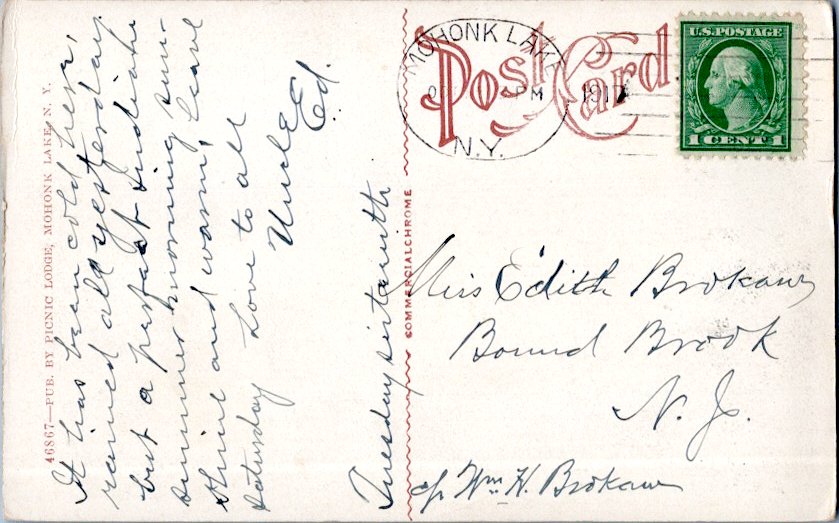 46867—PUB. BY PICNIC LODGE, MOHONK LAKE, N. Y.
It has been cold here,
rained all yesterday
but a perfect Indian
summer morning sun-
shine and warm, leave
Saturday Love to all
Uncle Ed.
Tuesday
COMMERCIALCHROME
Post Card
MOHONK LAKE
PM 1917
N.Y.
U.S. POSTAGE
1 CENT 1
Miss Edith Brokaw
Bound Brook
N. J.
c/o Wm. H. Brokaw